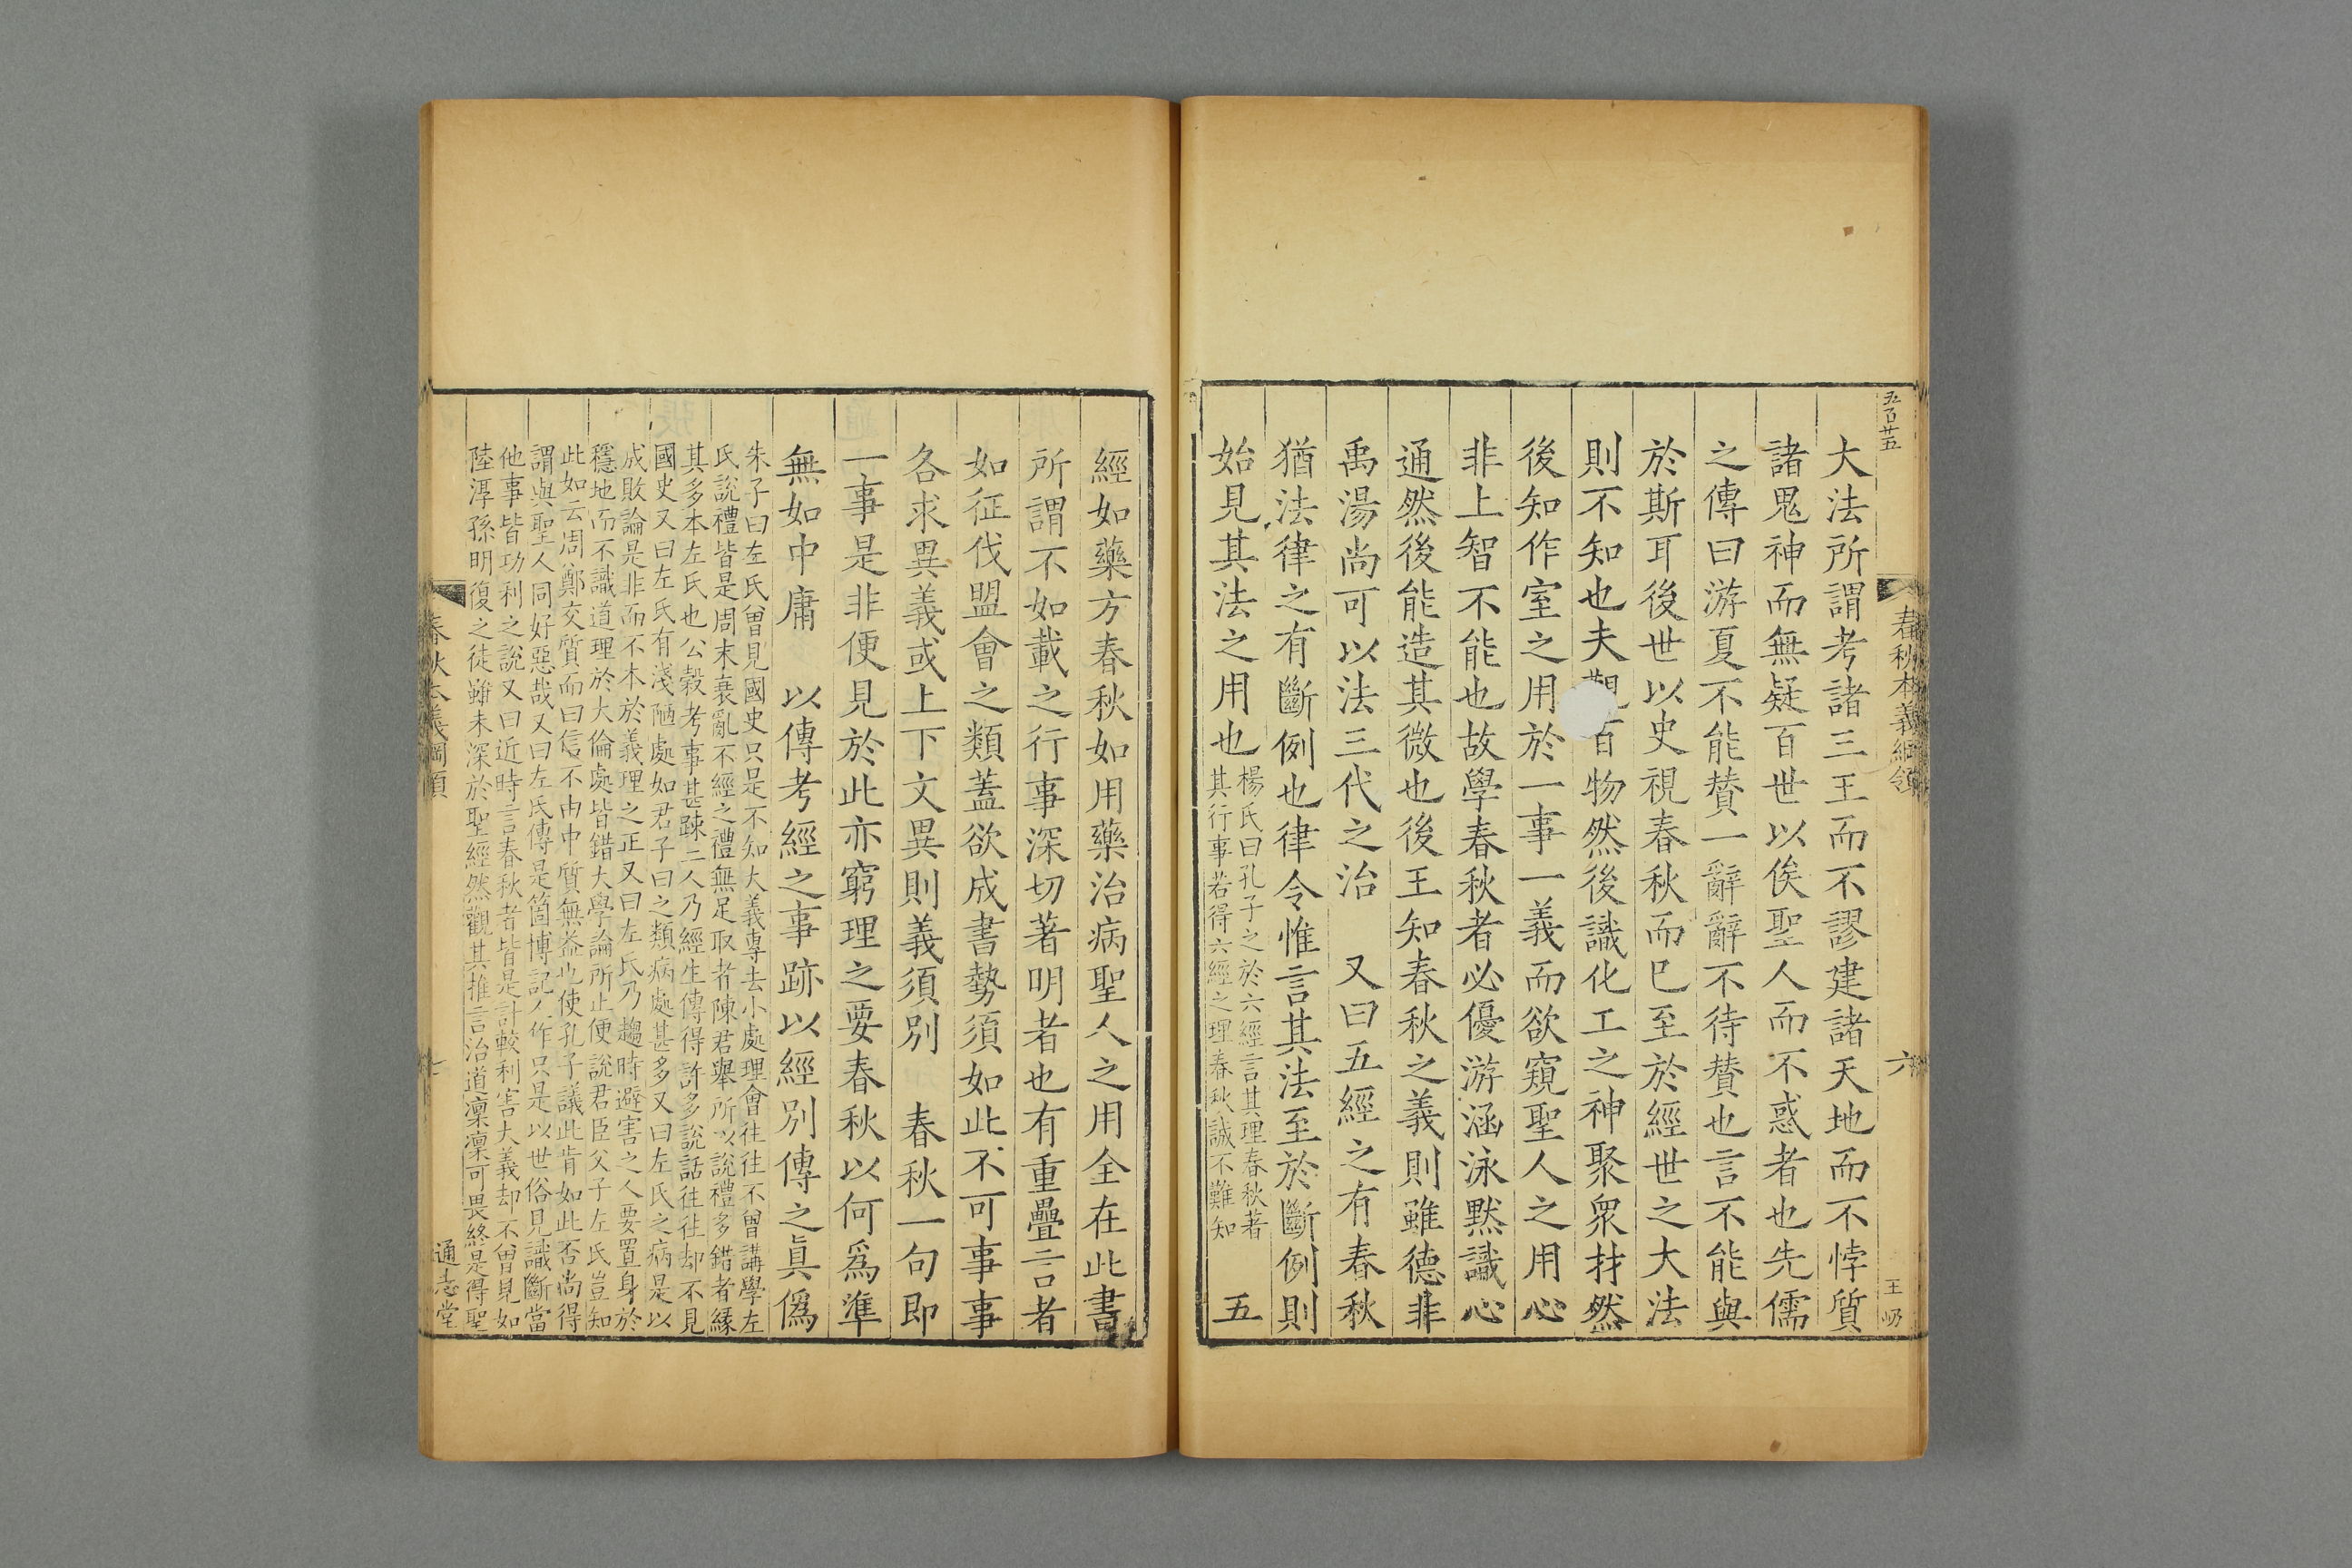 五百廿五
春秋本義綱領
六
王昒
大法所謂考諸三王而不謬建諸天地而不悖質
諸鬼神而無疑百世以俟聖人而不惑者也先儒
之傳曰游夏不能賛一辭辭不待賛也言不能與
於斯耳後世以史視春秋而巳至於經世之大法
則不知也夫觀百物然後識化工之神聚衆材然
後知作室之用於一事一義而欲窺聖人之用心
非上智不能也故學春秋者必優游涵泳黙識心
通然後能造其微也後王知春秋之義則雖德非
禹湯尚可以法三代之治 又曰五經之有春秋
猶法律之有斷例也律令惟言其法至於斷例則
始見其法之用也楊氏曰孔子之於六經言其理春秋著
其行事若得六經之理春秋誠不難知五
經如藥方春秋如用藥治病聖人之用全在此書
所謂不如載之行事深切著明者也有重疊言者
如征伐盟會之類蓋欲成書勢須如此不可事事
各求異義或上下文異則義須別 春秋一句即
一事是非便見於此亦窮理之要春秋以何爲準
無如中庸 以傳考經之事跡以經別傳之眞僞
朱子曰左氏曾見國史只是不知大義專去小處理會往往不曾講學左
氏說禮皆是周末衰亂不經之禮無足取者陳君舉所以說禮多錯者緣
其多本左氏也公穀考事甚踈二人乃經生傳得許多說話往往却不見
國史又曰左氏有淺陋處如君子曰之類病處甚多又曰左氏之病是以
成敗論是非而不本於義理之正又曰左氏乃趨時避害之人要置身於
穩地而不識道理於大倫處皆錯大學論所止便說君臣父子左氏豈知
此如云周鄭交質而曰信不由中質無益也使孔子議此肯如此否尚得
謂與聖人同好惡哉又曰左氏傳是箇博記人作只是以世俗見識斷當
他事皆功利之說又曰近時言春秋者皆是計較利害大義却不曾見如
陸淳孫明復之徒雖未深於聖經然觀其推言治道凜凜可畏終是得聖
春秋本義綱領
七
通志堂